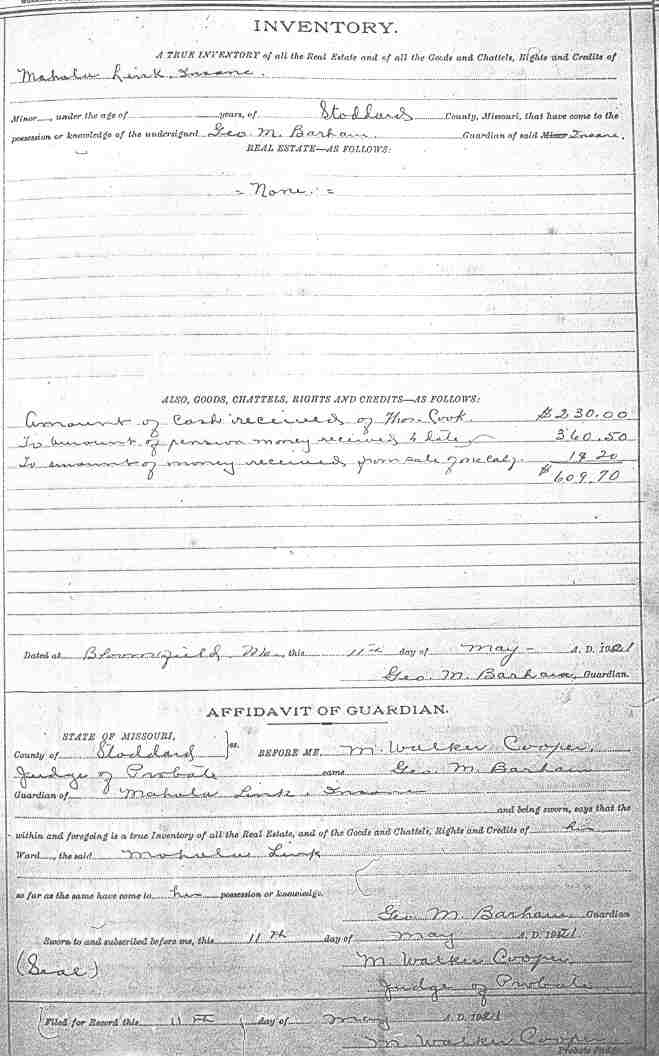 INVENTORY.
A TRUE INVENTORY of all the Real Estate and of all the Goods and Chattels, Rights and Credits of
Mahala Link, Insane.
Minor, under the age of years, of Stoddard County, Missouri, that have come to the
possession or knowledge of the undersigned Geo. M. Barham Guardian of said Minor Insane.
REAL ESTATE—AS FOLLOWS:
= None. =
ALSO, GOODS, CHATTELS, RIGHTS AND CREDITS—AS FOLLOWS:
Amount of cash received of Thos. Cook. $230.00
To amount of pension money received to date 360.50
To amount of money received from sale of one calf. 19.20
$609.70
Dated at Bloomfield, Mo., this 11th day of May A. D. 1921
Geo. M. Barham, Guardian.
AFFIDAVIT OF GUARDIAN.
STATE OF MISSOURI,
County of Stoddard } ss. BEFORE ME, M. Walker Cooper,
Judge of Probate came Geo. M. Barham
Guardian of Mahala Link, Insane
and being sworn, says that the
within and foregoing is a true Inventory of all the Real Estate, and of the Goods and Chattels, Rights and Credits of his
Ward, the said Mahala Link
so far as the same have come to his possession or knowledge.
Geo. M. Barham Guardian
Sworn to and subscribed before me, this 11th day of May A. D. 1921
(Seal) M. Walker Cooper,
Judge of Probate
Filed for Record this 11th day of May A. D. 1921
M. Walker Cooper
Probate Judge